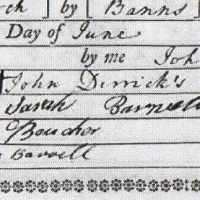 ch ] by [ Banns
Day of June
by me Joh
John Derrick's
Sarah Barnett
Boucher
Barrell